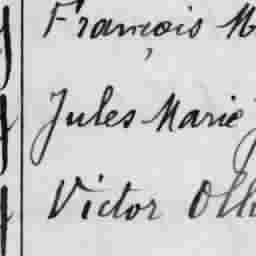 François M
Jules Marie
Victor Oll